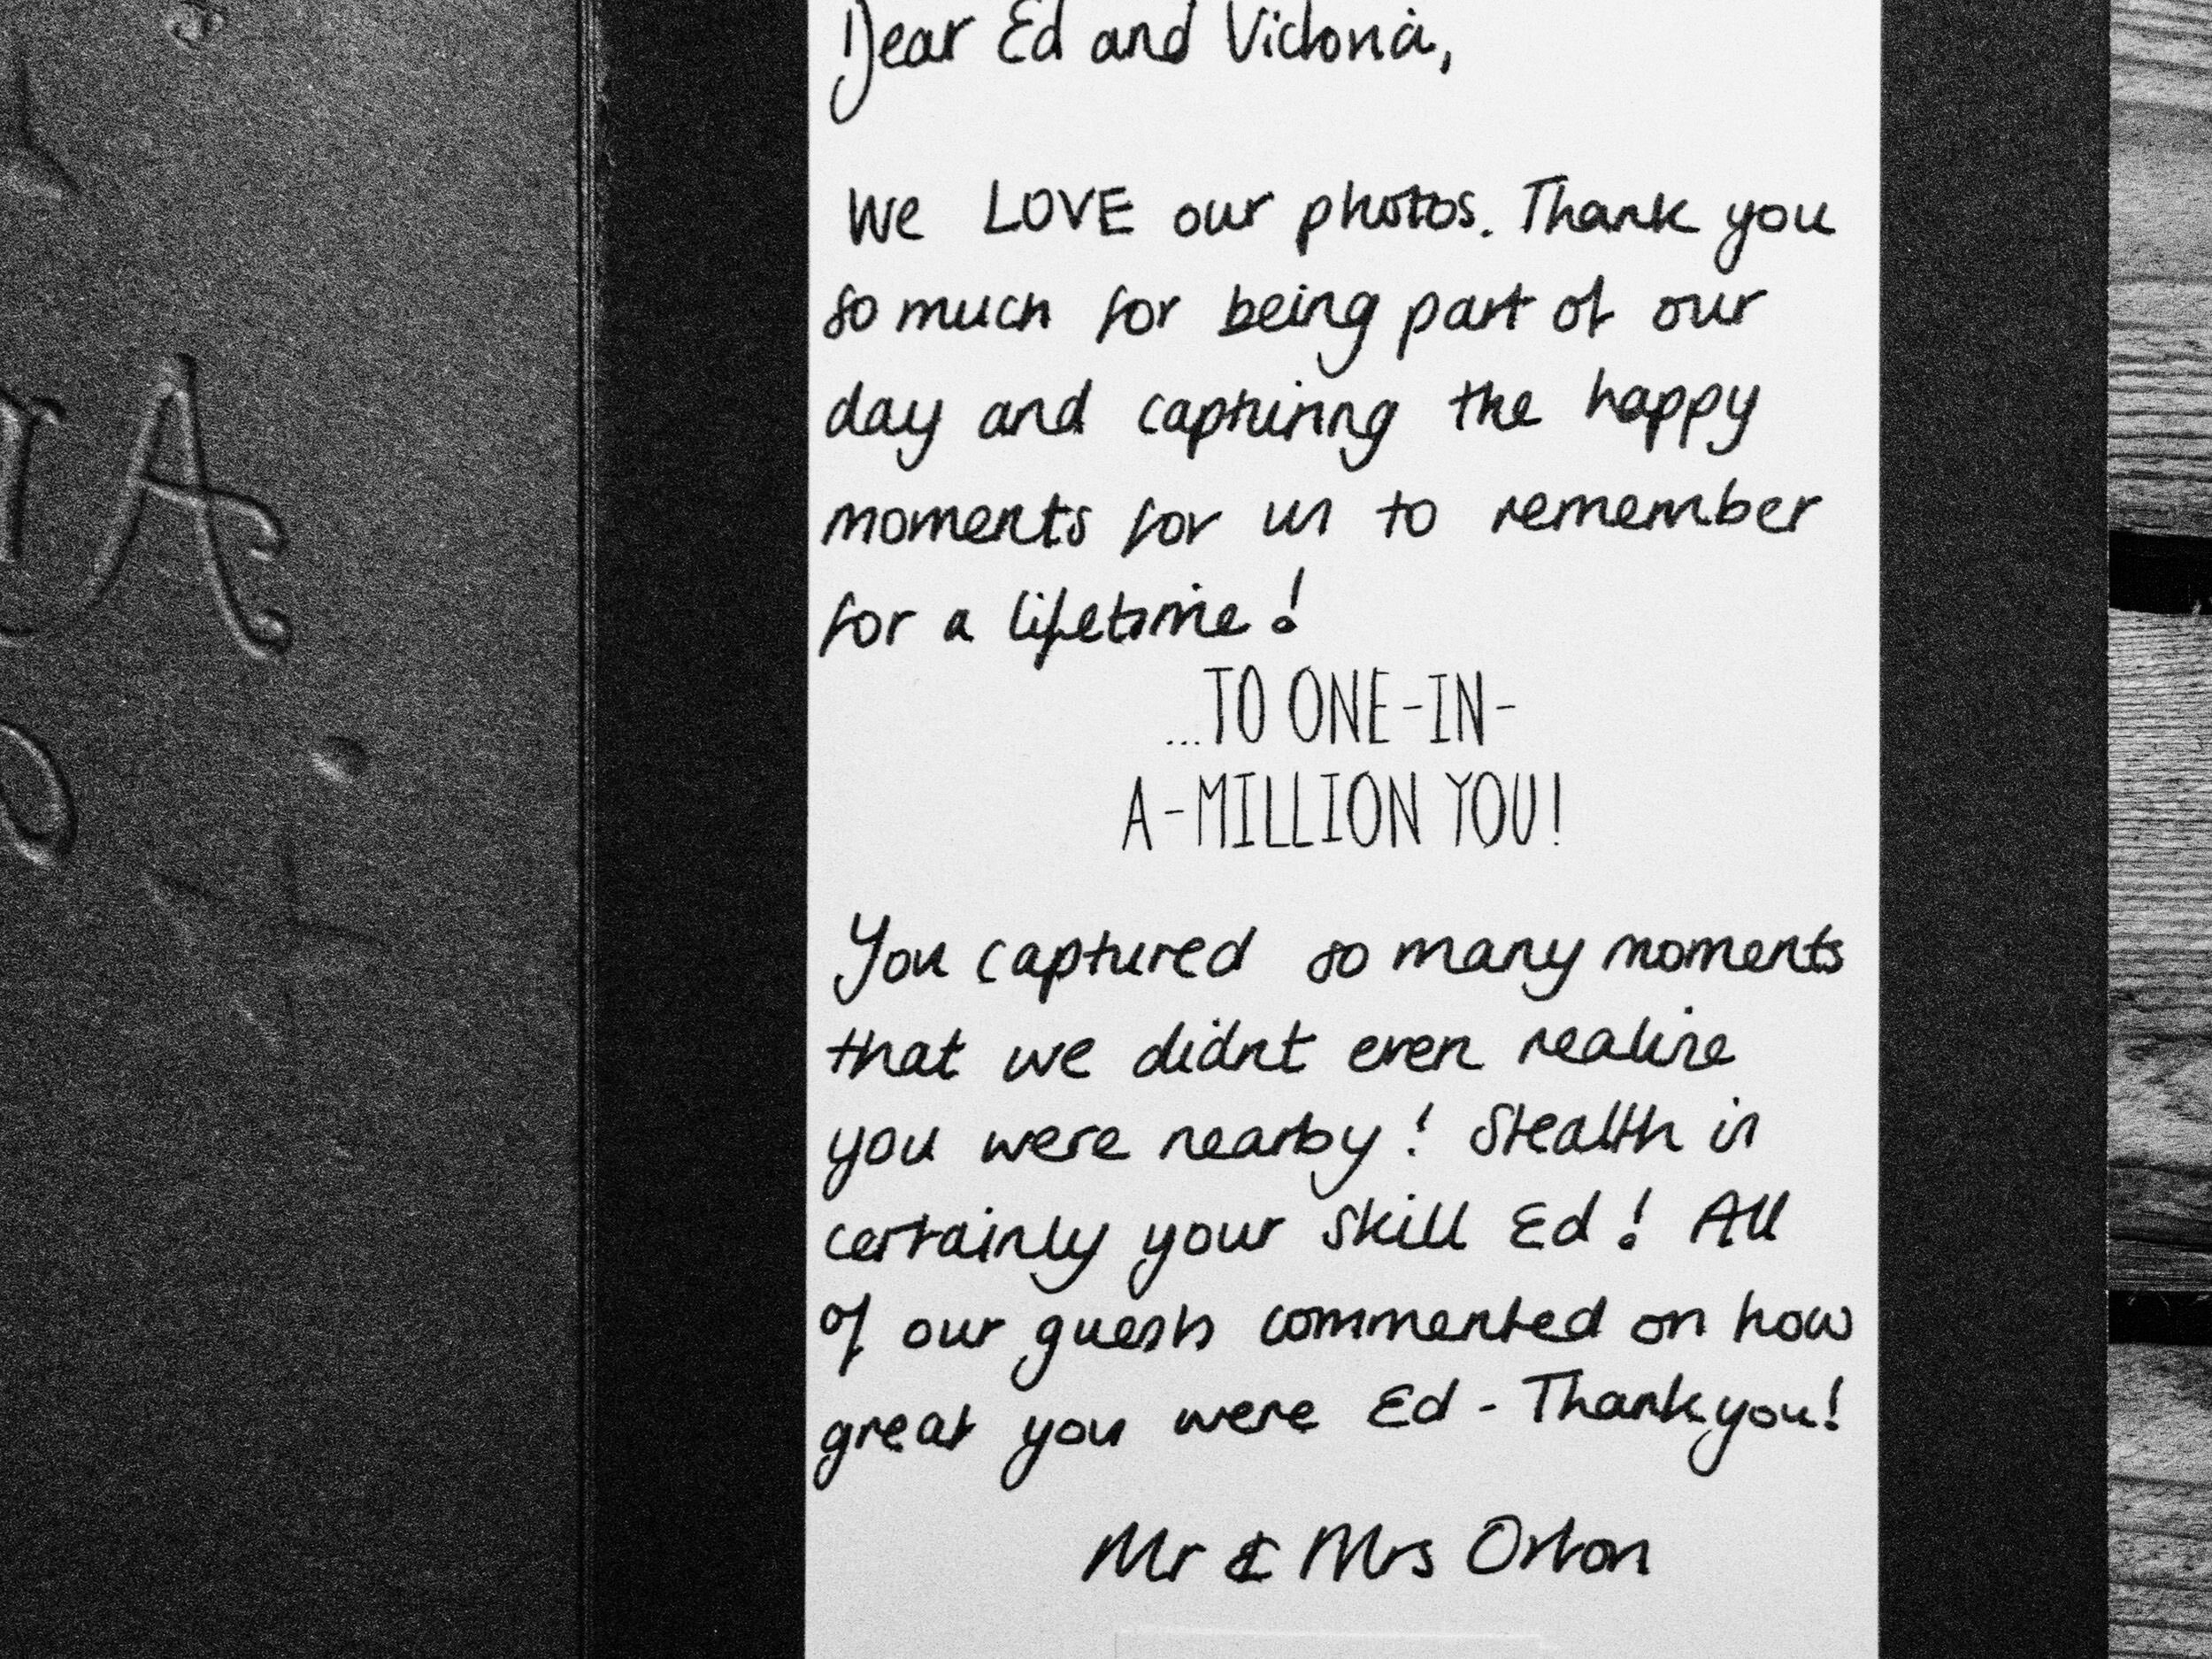 Dear Ed and Victoria,
We LOVE our photos. Thank you
so much for being part of our
day and capturing the happy
moments for us to remember
for a lifetime!
...TO ONE-IN-
A-MILLION YOU!
You captured so many moments
that we didnt even realise
you were nearby! Stealth is
certainly your skill Ed! All
of our guests commented on how
great you were Ed - Thankyou!
Mr & Mrs Orton